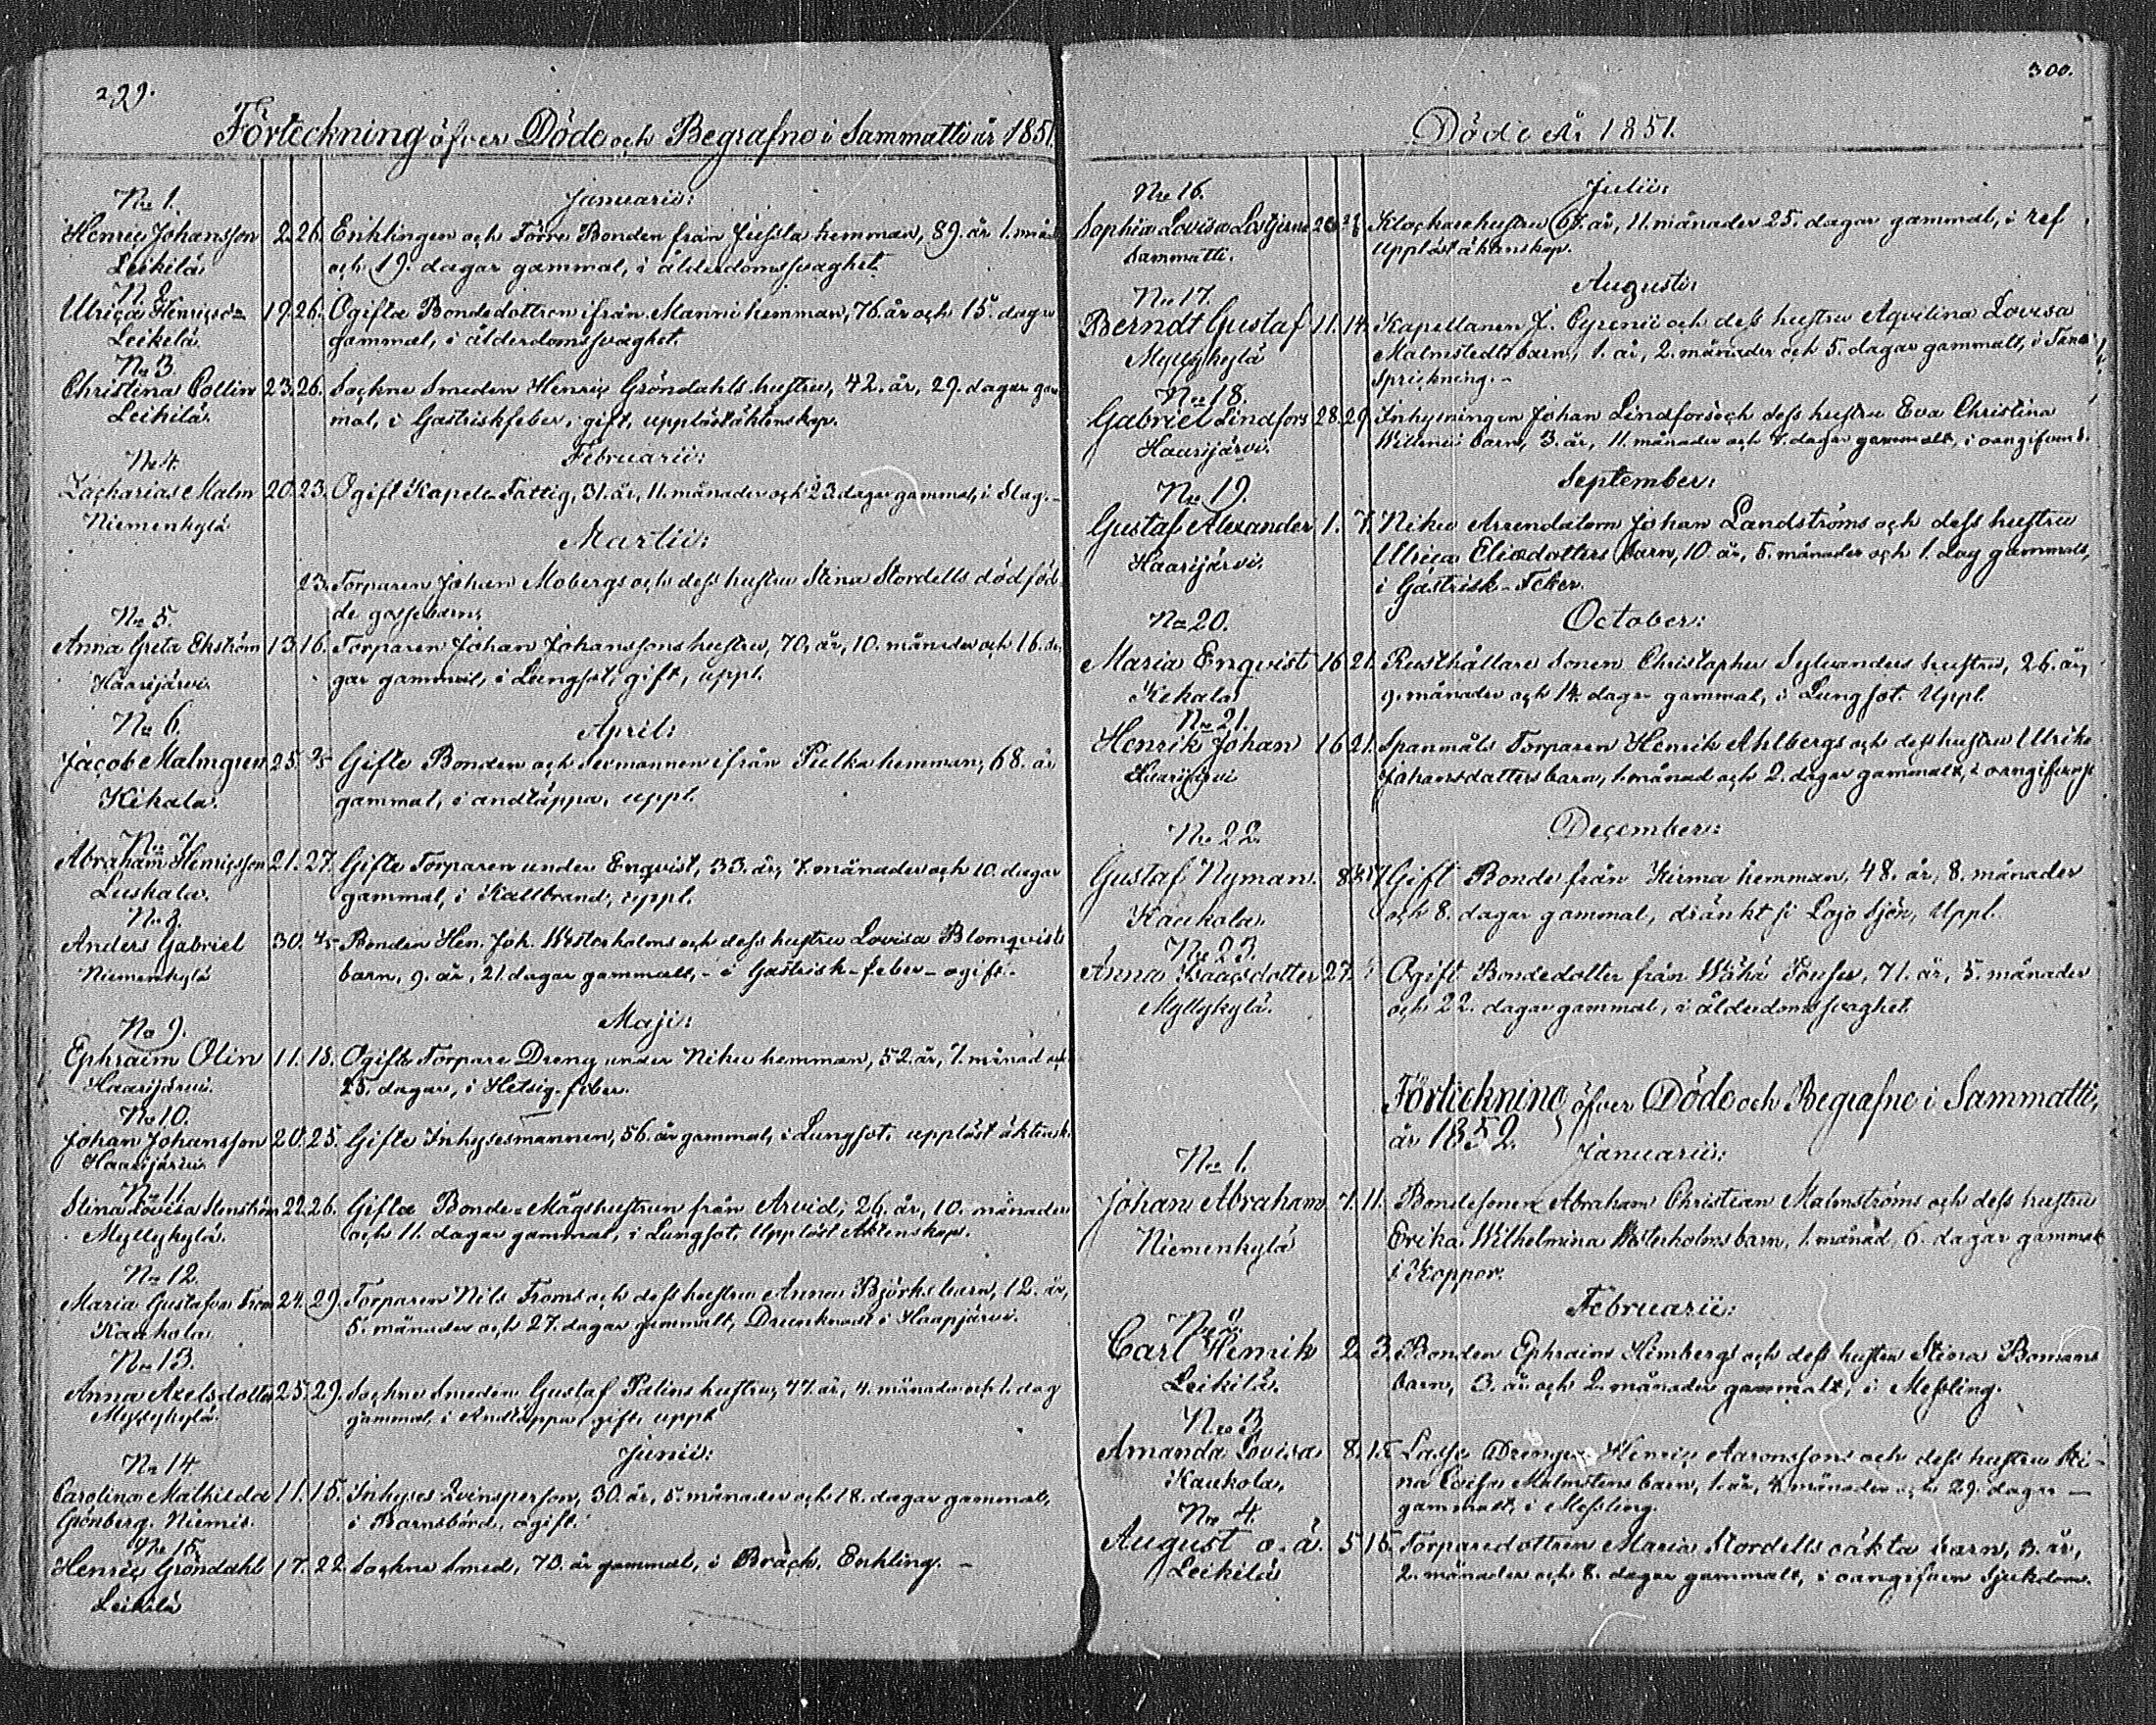 299.
Förteckning öfver Döde och Begrafne i Sammatti år 1851.
No 1.
Januarii:
Henric Johansson 2. 26. Enklingen och Förre Bonden från Jussila hemman, 89. år 1. mån
Leikilä. och 19. dagar gammal, i ålderdomssvaghet.
N. 2.
Ulrica Henricsdr 19. 26. Ogifta Bondedottren ifrån Manni hemman, 76. år och 15. dagr
Leikilä gammal, i ålderdomssvaghet.
No 3
Christina Collin 23. 26. Sockne Smeden Henric Gröndahls hustru, 42. år, 29. dagar gam
Leikilä. mal, i Gastriskfeber, gift, upplöst äktenskap.
Februarii:
No 4.
Zacharias Malm 20. 23. Ogift Kapels Fattig, 31. år, 11. månader och 23 dagar gammal, i Slag.-
Niemenkylä
Martii:
23. Torparen Johan Mobergs och dess hustru Stina Stordells dödföd
de gossebarn.
No 5.
Anna Greta Ekström 13. 16. Torparen Johan Johanssons hustru, 70, år, 10. månader och 16. da
Haarijärvi. gar gammal, i Lungsot, gift, uppl.
No 6.
April:
Jacob Malmgren 25. 2/5 Gifte Bonden och Sexmannen ifrån Pulka hemman, 68. år
Kikala. gammal, i andtäppa, uppl.
No 7.
Abraham Henricsson 21. 27. Gifte Torparen under Enqvist, 33. år, 7. månader och 10. dagar
Luskala. gammal, i Kallbrand, uppl.
No 8.
Anders Gabriel 30. 4/5 Bonden Hen. Joh. Westerholms och dess hustru Lovisa Blomqvists
Niemenkylä barn, 9. år, 21. dagar gammalt, - i Gastrisk-feber - ogift.-
Maji:
No 9.
Ephraim Olin 11. 18. Ogifte Torpare Dreng under Niku hemman, 52. år, 7. månad och
Haarijärvi. 25. dagar, i Hetsig-feber.
No 10.
Johan Johansson 20. 25. Gifte Inhysesmannen, 56. år gammal, i Lungsot, upplöst äktensk.
Haarijärvi.
No 11.
Stina Lovisa Stenström 22. 26. Gifta Bonde-Mågshustrun från Arvid, 26. år, 10. månader
Myllykylä. och 11. dagar gammal, i Lungsot, Upplöst Äktenskap.
No 12.
Maria Gustafva From 24. 29. Torparen Nils Froms och dess hustru Anna Björks barn, 12. år,
Kaukola. 5. månader och 27. dagar gammalt, Drunknadt i Haapjärvi.
No 13.
Anna Axelsdotter 25. 29. Sockne Smeden Gustaf Palins hustru, 77. år, 4. månader och 1. dag
Myllykylä. gammal, i Andtäppa, gift, uppl.
Junii:
No 14.
Carolina Mathilda 11. 15. Inhyses Qvinsperson, 30. år, 5. månader och 18. dagar gammal,
Grönberg. Niemis. i Barnsbörd, ogift.
No 15.
Henric Gröndahl 17. 22. Sockne Smed, 73. år gammal, i Bråck. Enkling. -
Leikilä
300.
Döde År 1851.
No 16.
Julii:
Sophia Lovisa 20. Klockarehustru 67. år, 11. månader 25. dagar gammal, i ref
Sammatti. Upplöst äktenskap.
Augusti:
No 17.
Berndt Gustaf 11. 14. Kapellanen J. Cyrenii och dess hustru Aqvilina Lovisa
Myllykylä Malmstedts barn, 1. år, 2. månader och 5. dagar gammalt, i Tand
sprickning. -
No 18.
Gabriel Lindfors 28. 29. Inhysningen Johan Lindfors och dess hustru Eva Christina
Haarijärvi. Willenii barn, 3. år, 11. månader och 7. dagar gammalt, i oangifven s.
September:
No 19.
Gustaf Alexander 1. 7. Niku Arrendatorn Johan Landströms och dess hustru
Haarijärvi. Ulrica Eliædotters barn, 10. år, 5. månader och 1. dag gammalt,
i Gastrisk-Feber.
October:
No 20.
Maria Enqvist 16 21. Rusthållare Sonen Christopher Sylvanders hustru, 26. år,
Kikala. 9. månader och 14. dagar gammal, i Lungsot. Uppl.
No 21.
Henrik Johan 16 21. Spanmåls Torparen Henrik Ahlbergs och dess hustru Ulrika
Johansdotters barn, 1. månad och 2. dagar gammalt, i oangifven s
December:
No 22.
Gustaf Nyman. 8 Gift Bonde från Kirma hemman, 48. år, 8. månader
Kaukola. och 8. dagar gammal, dränkt i Lojo Sjön, Uppl.
No 23.
Anna Isacsdotter 27. Ogift Bondedotter från Wähä 71. år, 5. månader
Myllykylä. och 22. dagar gammal, i ålderdomssvaghet.
Förteckning öfver Döde och Begrafne i Sammatti,
år 1852.
Januarii:
No 1.
Johan Abraham 7. 11. Bondesonen Abraham Christian Malmströms och dess hustru
Niemenkylä Erika Wilhelmina Westerholms barn, 1. månad, 6. dagar gammalt
i Koppor.
Februarii:
No 2.
Carl Henrik 2. 3. Bonden Ephraim Himbergs och dess hustru Stina Bomans
Leikilä. barn, 3. år och 2. månader gammalt, i Messling.
No 3
Amanda Lovisa 8. 15. Lasse Drengen Henric Aaronssons och dess hustru Sti-
Kaukola. na Lovisa Malmstens barn, 1. år, 4. månader och 29. dagar -
gammalt, i Messling.
No 4.
August o. ä. 5 15. Torparedottren Maria Stordells oäkta barn, 3. år,
Leikilä 2. månader och 8. dagar gammalt, i oangifven Sjukdom.